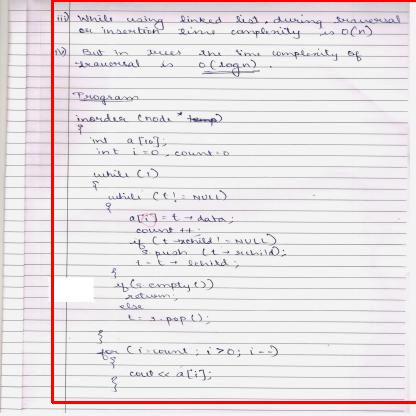 iii) While using linked list, during traversal
or insertion time complexity is O(n)
iv) But in trees the time complexity of
traversal is O(logn).
Program
inorder (node * temp)
{
int a[10];
int i=0, count=0
while (1)
{
while (t != NULL)
{
a[i] = t → data;
count ++;
if (t → rchild != NULL)
s push (t → rchild);
t = t → lchild;
}
if (s empty())
return;
else
t = s.pop();
}
}
for (i=count; i>0; i--)
{
cout << a[i];
}